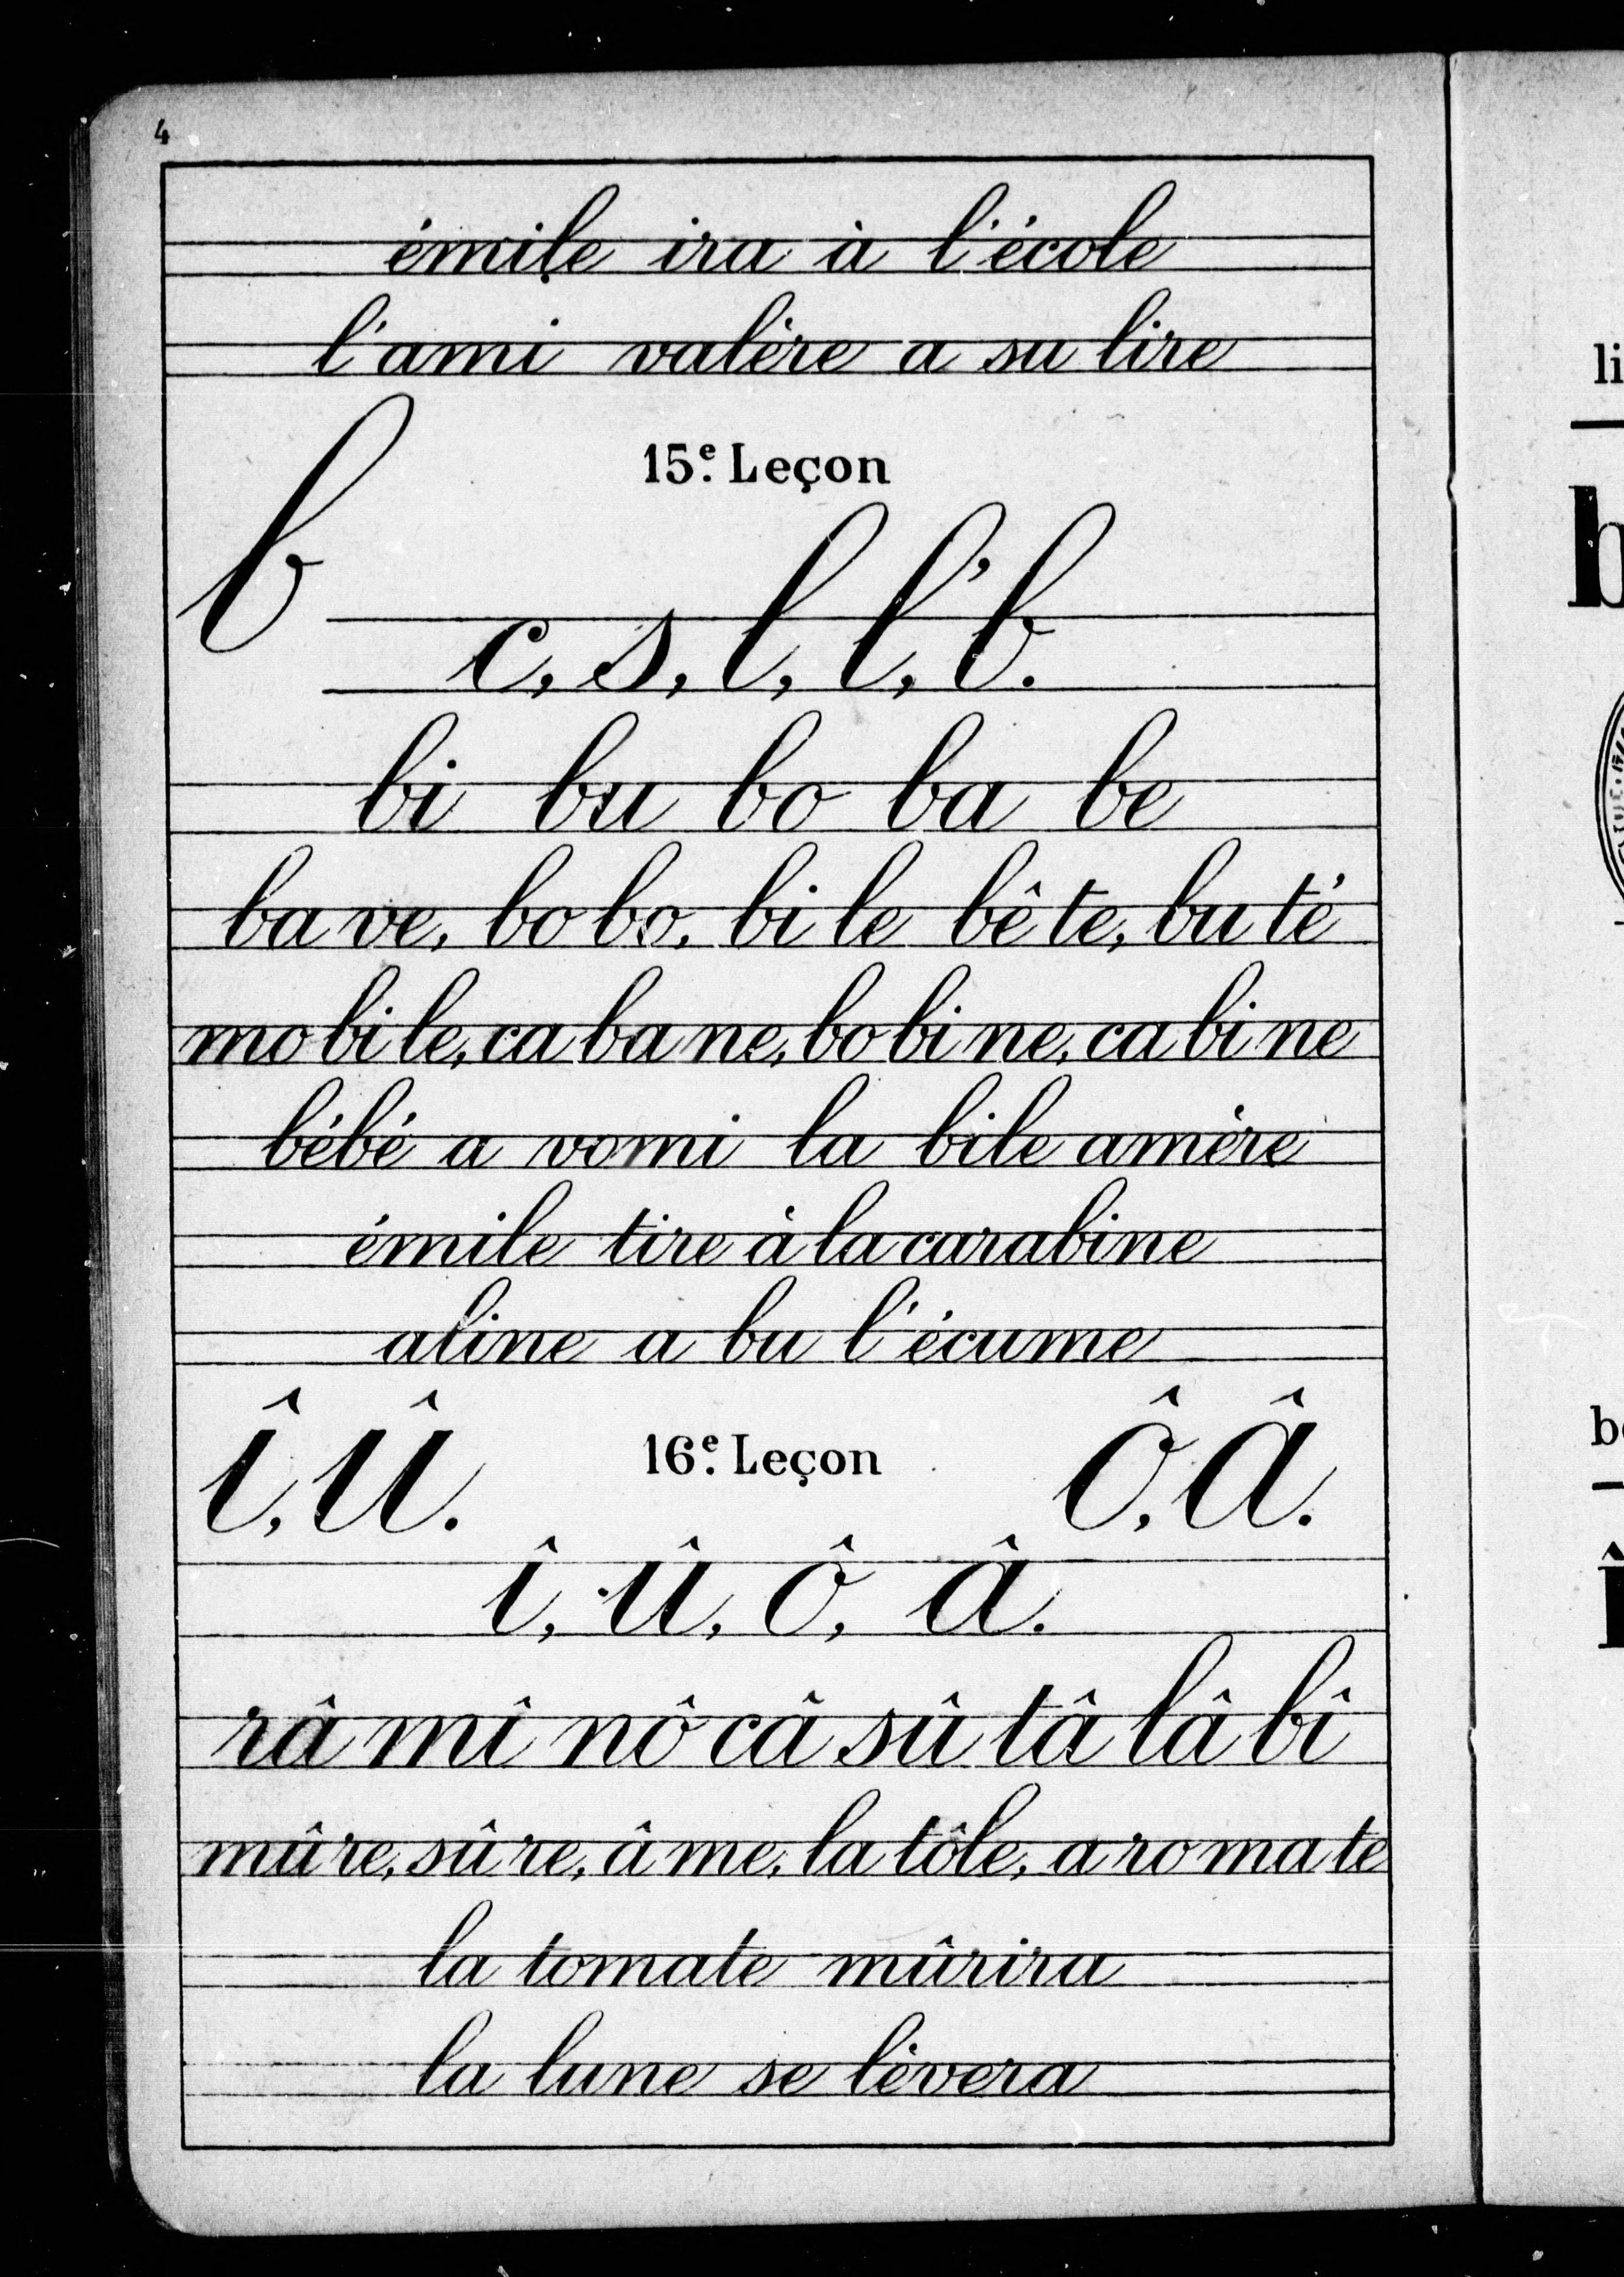 4
émile ira à l'école
l'ami valère a su lire
15e. Leçon
b
c, s, l, l', b.
bi bu bo ba be
ba ve, bo bo, bi le bê te, bu té
mo bi le, ca ba ne, bo bi ne, ca bi ne
bébé a vomi la bile amère
émile tire à la carabine
aline a bu l'écume
î, û. 16e. Leçon ô, â.
î, û, ô, â.
râ mî nô câ sû tâ lâ bî
mû re, sû re, â me, la tôle, a ro ma te
la tomate mûrira
la lune se lèvera
li
b
b
î